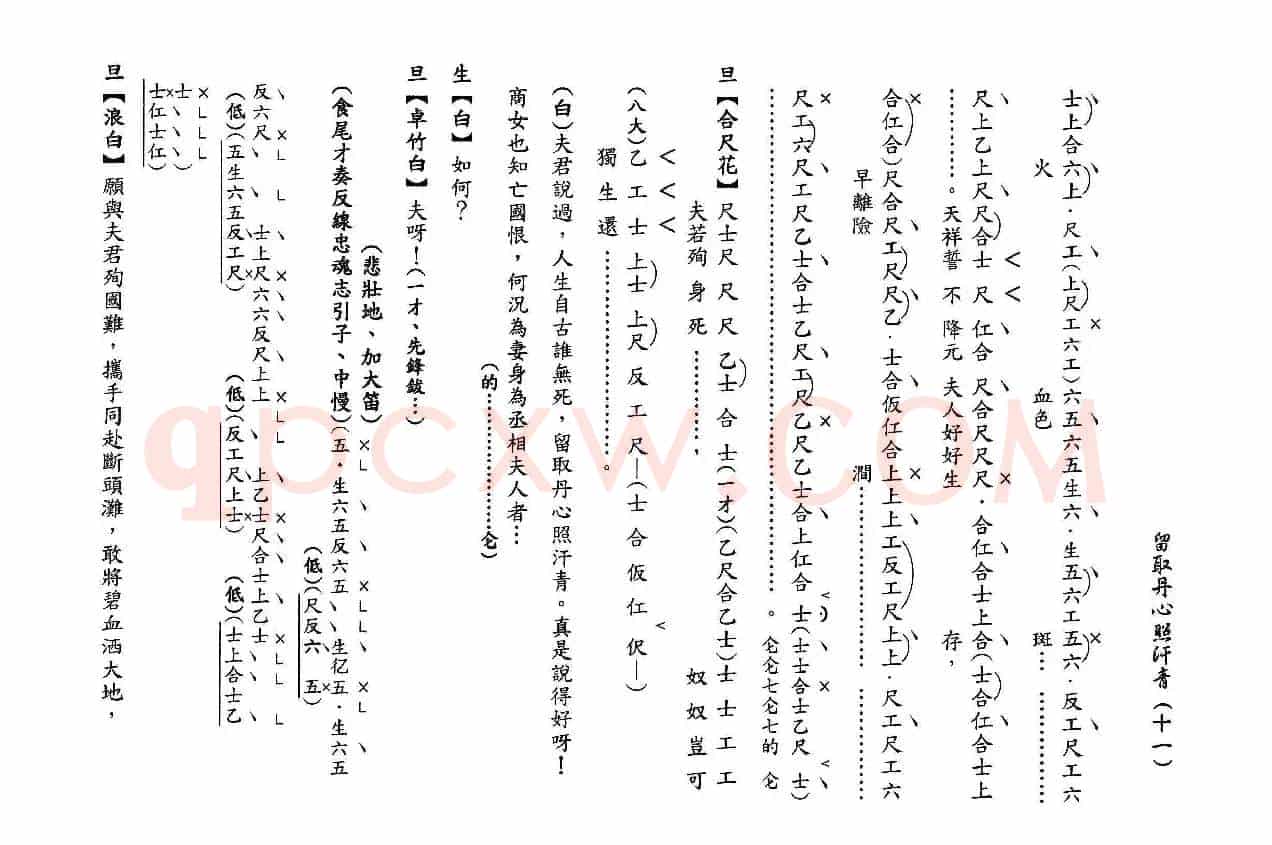 留取丹心照汗青（十一）
士上合六上．尺工（上尺工六工）六五六五生六．生五六工五六．反工尺工六
火　血色　斑…………………
尺上乙上尺尺合士尺仜合尺合尺尺尺．合仜合士上合（士合仜合士上
………。天祥誓不降元　夫人好好生　存，
合仜合）尺合尺工尺尺乙．士合仮仜合上上上工反工尺上上．尺工尺工六
早離險　澗……………………………
尺工六尺工尺乙士合士乙尺工尺乙尺乙士合上仜合士（士士合士乙尺士）
………………………………………………。仑仑七仑七的仑
旦【合尺花】尺士尺尺尺乙士合士（一才）（乙尺合乙士）士士工工
夫若殉身死…………，奴奴豈可
（八大）乙工士上士上尺反工尺—（士合仮仜伬—）
獨生還…………………………。
（白）夫君說過，人生自古誰無死，留取丹心照汗青。真是說得好呀！
商女也知亡國恨，何況為妻身為丞相夫人者…
（的………………仑）
生【白】如何？
旦【卓竹白】夫呀！（一才、先鋒鈸…）
（悲壯地、加大笛）
（食尾才奏反線忠魂志引子、中慢）（五．生六五反六五生亿五．生六五
（低）（尺反六五）
反六尺士上尺六六反尺上上上乙士尺合士上乙士
（低）（五生六五反工尺）（低）（反工尺上士）（低）（士上合士乙
士
士仜士仜）
旦【浪白】願與夫君殉國難，攜手同赴斷頭灘，敢將碧血洒大地，
qpcxw.COM